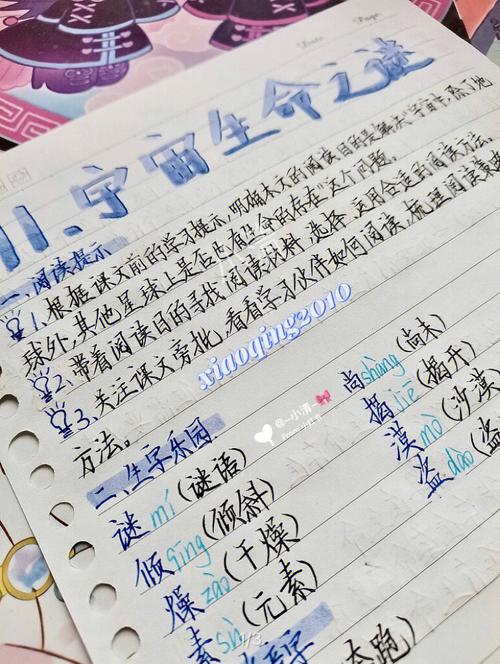 Date
Page
11.宇宙生命之谜
一、阅读提示
1.根据课文前的学习提示,明确本文的阅读目的是解决“宇宙中,除了地
球外,其他星球上是否也有生命的存在”这个问题。
2.带着阅读目的寻找阅读材料,选择、运用合适的阅读方法。
3.关注课文旁批,看看学习伙伴如何阅读,梳理阅读
方法。
xiaoqing2010
@一小清一
二、生字乐园
谜mí(谜语) 尚shàng(尚未)
倾qīng(倾斜) 揭jiē(揭开)
燥zào(干燥) 漠mò(沙漠)
素sù(元素) 盗dào(盗
字
1/3